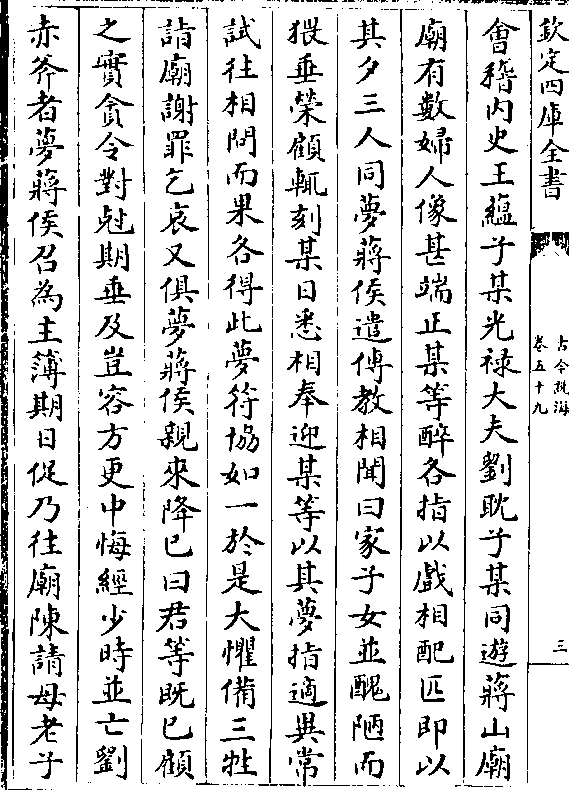 欽定四庫全書
古今說海
卷五十九
三
會稽内史王蘊子某光祿大夫劉耽子某同遊蔣山廟
廟有數婦人像甚端正某等醉各指以戲相配匹即以
其夕三人同夢蔣侯遣傳教相聞曰家子女並醜陋而
猥垂榮顧輒刻某日悉相奉迎某等以其夢指適異常
試往相問而果各得此夢符協如一於是大懼備三牲
詣廟謝罪乞哀又俱夢蔣侯親來降已曰君等既已顧
之實貪令對尅期垂及豈容方更中悔經少時並亡劉
赤斧者夢蔣侯召為主簿期日促乃往廟陳請母老子